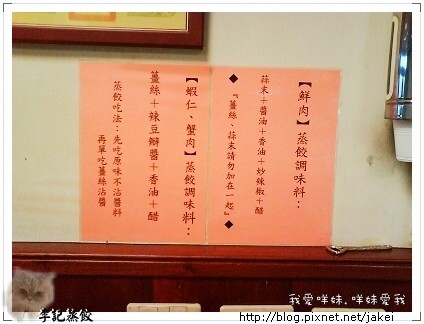 【鮮肉】蒸餃調味料：
蒜末＋醬油＋香油＋炒辣椒＋醋
◆『薑絲、蒜末請勿加在一起』◆
【蝦仁、蟹肉】蒸餃調味料：
薑絲＋辣豆瓣醬＋香油＋醋
蒸餃吃法：先吃原味不沾醬料
再單吃薑絲沾醬
李記蒸餃
我愛咪妹.咪妹愛我
http://blog.pixnet.net/jakei